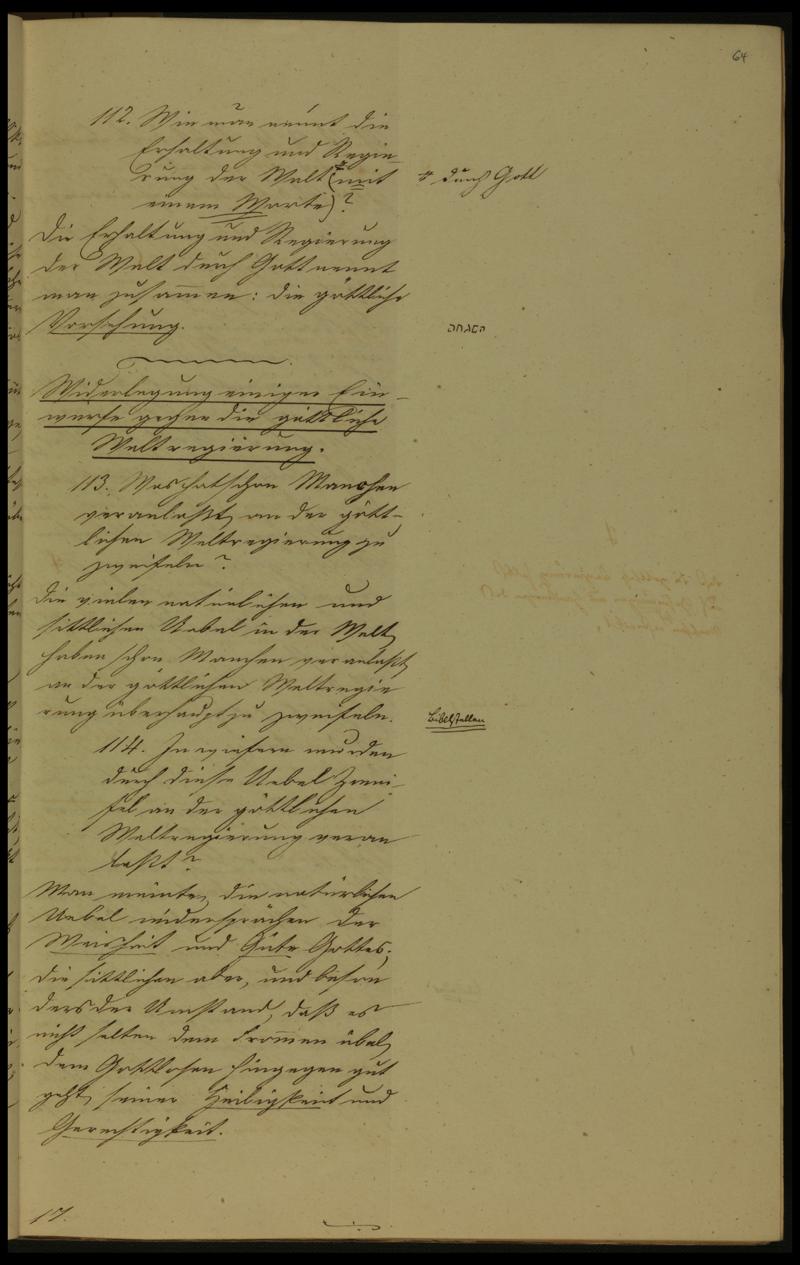 64
112. Wie man nennt die
Erhaltung und Regie-
rung der Welt # (mit
einem Worte)?
# durch Gott
Die Erhaltung und Regierung
der Welt durch Gott nennt
man zusammen: die göttliche
Vorsehung.
השגחה
Widerlegung einiger Ein-
würfe gegen die göttliche
Weltregierung.
113. Was hat schon Manchen
veranlaßt, an der gött-
lichen Weltregierung zu
zweifeln?
Die vielen natürlichen und
sittlichen Uebel in der Welt,
haben schon Manchen veranlaßt,
an der göttlichen Weltregie
rung überhaupt zu zweifeln.
Bibelstellen
114. In wiefern wurden
durch diese Uebel Zwei-
fel an der göttlichen
Weltregierung veran
laßt?
Man meinte, die natürlichen
Uebel widersprächen der
Weisheit und Güte Gottes;
die sittlichen aber, und beson
ders der Umstand, daß es
nicht selten dem Frommen übel,
dem Gottlosen hingegen gut
geht, seiner Heiligkeit und
Gerechtigkeit.
17.